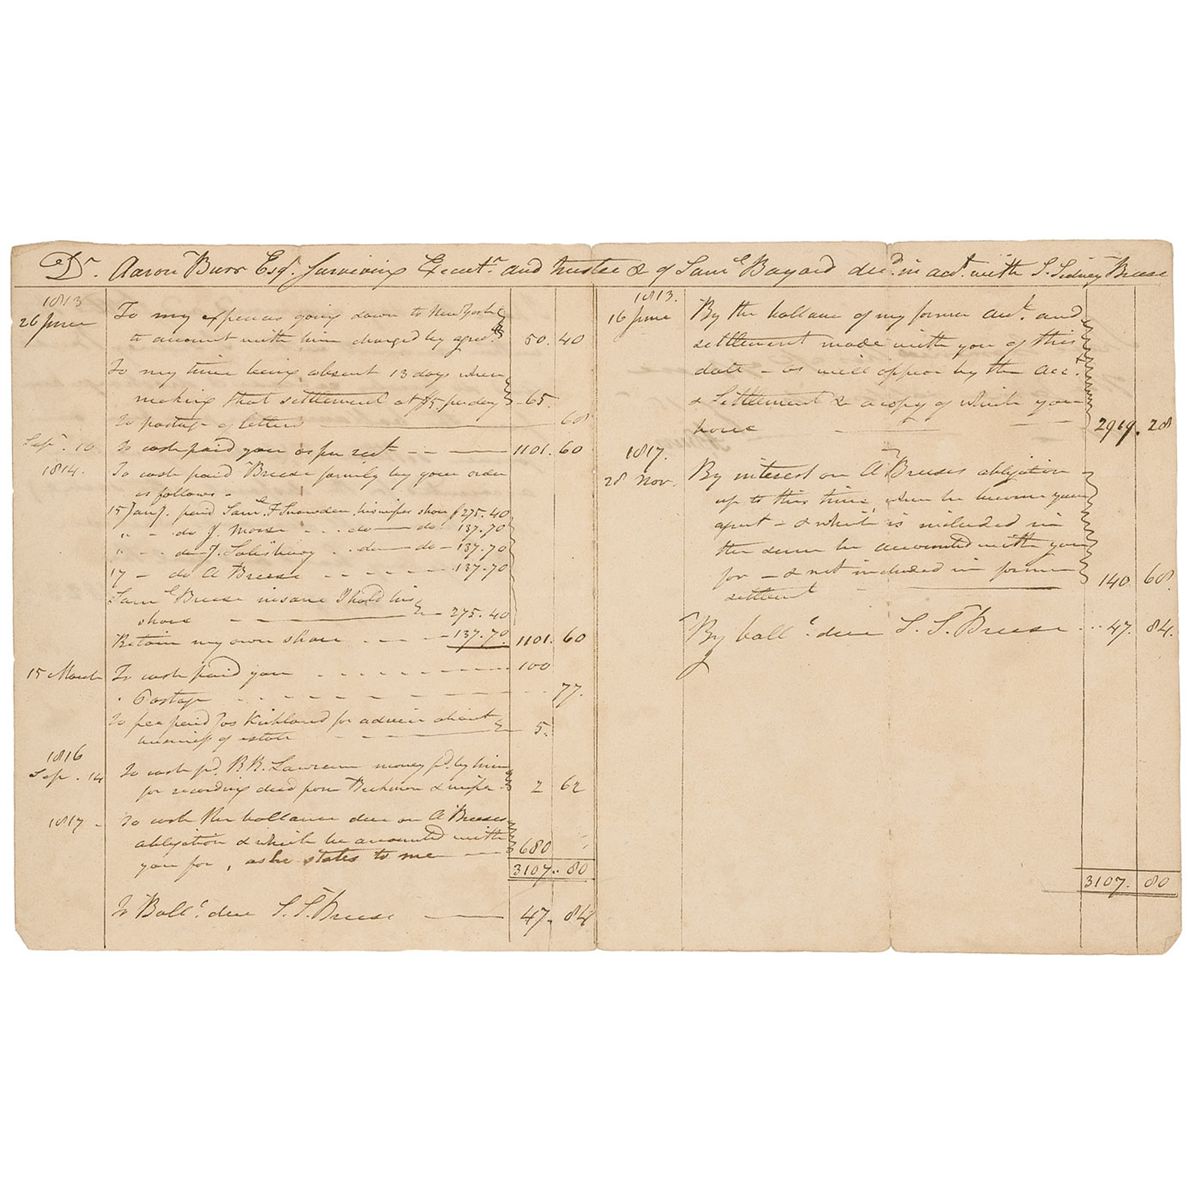 Dr. Aaron Burr Esqr. Surviving Executr. and trustee & of Saml. Bayard decd. in acct. with S. Sidney Breese
1813
26 June To my expences going down to New York
to account with him charged by agret. 50. 40
To my time being absent 13 days when
making that settlement at $5 per day 65.
To postage of letters 68
Sepr. 10 To cash paid you as per rect 1101. 60
1814. To cash paid Breese family by your order
as follows -
15 Jany. paid Saml. F Snowden, his wifes share $275.40
" - do J. Morse - do - do - 137.70
" - do J. Salisbury - do - do - 137.70
17 - do A Breese - 137.70
Saml. Breese insane I hold his
share 275.40
Retain my own share 137.70 1101. 60
15 March To cash paid you 100
" Postage 77.
To fee paid Jos Kirkland for advice about
business of estate 5.
1816
Sep. 14 To cash pd. B B. Lawrence money pd. by him
for recording deed from Beekman & wife 2 62
1817 - To cash the ballance due on A Breeses
obligation & which he accounted with
you for, as he states to me 680
3107. 80
To Balle. due S. S. Breese 47. 84
1813.
16 June By the ballance of my former acct. and
settlement made with you of this
date - as will appear by the acct.
& Settlement & a copy of which you
have 2919. 28
1817.
28 Nov. By interest on A Breeses obligation
up to this time, when he
apart - & which is included in
the sum he accounted with you
for - & not included in former
settlemt. 140 68
By balle. due S. S. Breese 47. 84.
3107. 80